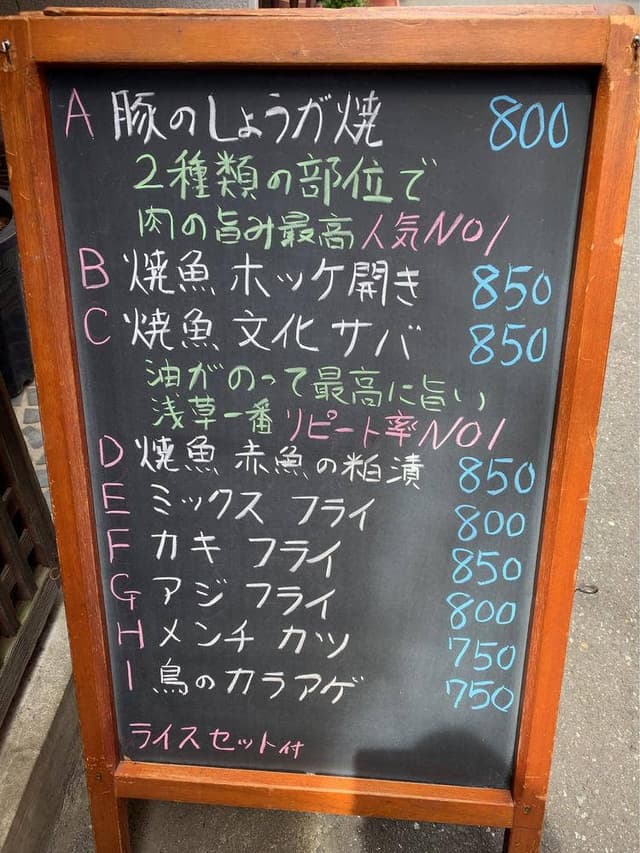 A 豚のしょうが焼 800
2種類の部位で
肉の旨み最高 人気NO1
B 焼魚 ホッケ開き 850
C 焼魚 文化サバ 850
油がのって最高に旨い
浅草一番 リピート率NO1
D 焼魚 赤魚の粕漬 850
E ミックス フライ 800
F カキ フライ 850
G アジ フライ 800
H メンチ カツ 750
I 鳥のカラアゲ 750
ライスセット付